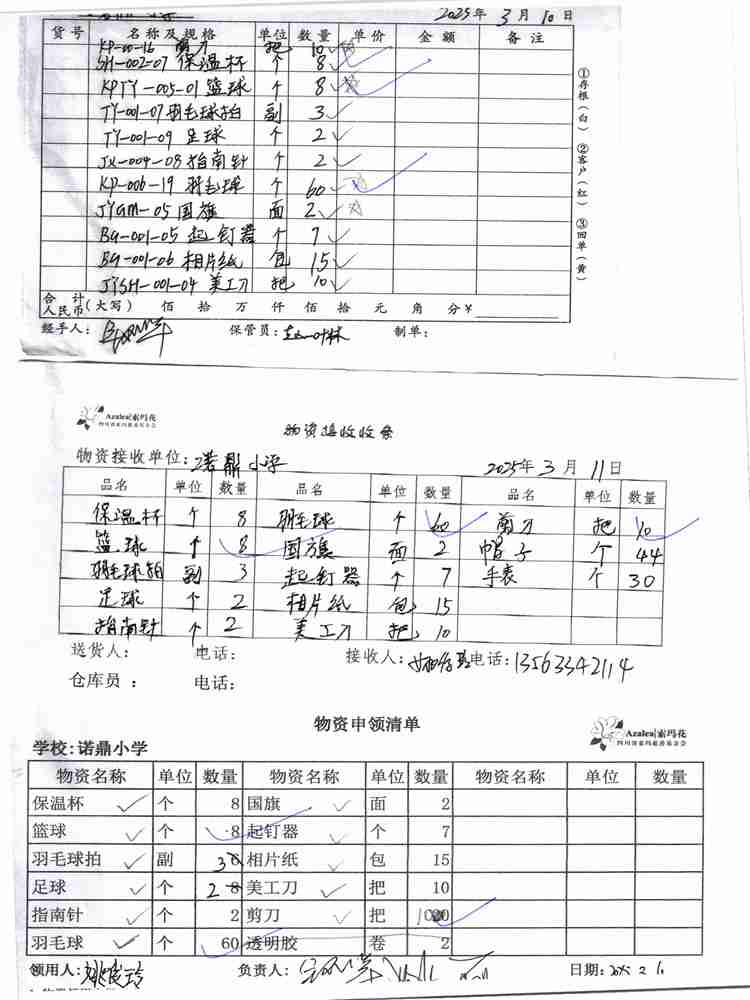 2025年 3月 10日
货号 名称及规格 单位 数量 单价 金额 备注
KP-00-16 剪刀 把 10
SH-002-07 保温杯 个 8
KPTY-005-01 篮球 个 8
TY-001-07 羽毛球拍 副 3
TY-001-09 足球 个 2
JX-004-08 指南针 个 2
KP-006-19 羽毛球 个 60
JYGM-05 国旗 面 2
BG-001-05 起钉器 个 7
BG-001-06 相片纸 包 15
JYSH-001-04 美工刀 把 10
合计人民币(大写) 佰 拾 万 仟 佰 拾 元 角 分 ¥
经手人: 保管员: 制单:
①存根(白) ②客户(红) ③回单(黄)
Azalea|索玛花
四川省索玛慈善基金会
物资接收收条
物资接收单位:诺鼎小学 2025年3月11日
品名 单位 数量 品名 单位 数量 品名 单位 数量
保温杯 个 8 羽毛球 个 60 剪刀 把 10
篮球 个 8 国旗 面 2 帽子 个 44
羽毛球拍 副 3 起钉器 个 7 手表 个 30
足球 个 2 相片纸 包 15
指南针 个 2 美工刀 把 10
送货人: 电话: 接收人: 电话:13563342114
仓库员: 电话:
物资申领清单
Azalea|索玛花
四川省索玛慈善基金会
学校:诺鼎小学
物资名称 单位 数量 物资名称 单位 数量 物资名称 单位 数量
保温杯 个 8 国旗 面 2
篮球 个 8 起钉器 个 7
羽毛球拍 副 3 相片纸 包 15
足球 个 2 8 美工刀 把 10
指南针 个 2 剪刀 把 10
羽毛球 个 60 透明胶 卷 2
领用人: 负责人: 日期: